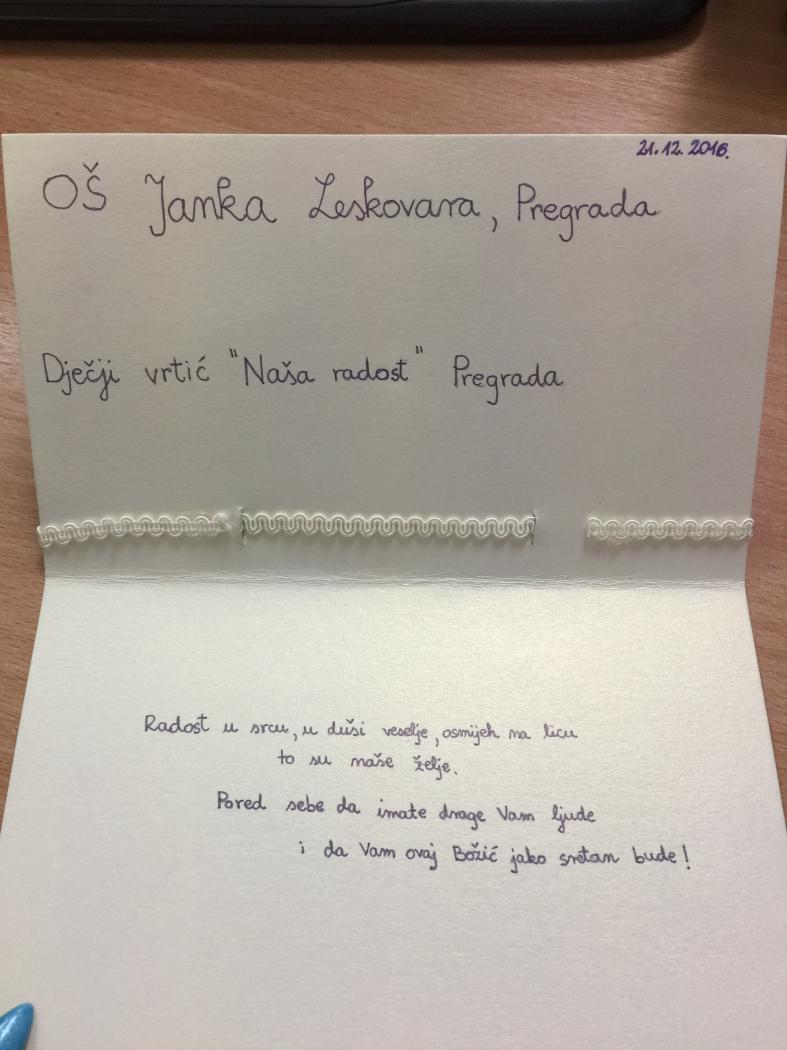 21.12.2016.
OŠ Janka Leskovara, Pregrada
Dječji vrtić "Naša radost" Pregrada
Radost u srcu, u duši veselje, osmijeh na licu
to su naše želje.
Pored sebe da imate drage Vam ljude
i da Vam ovaj Božić jako sretan bude!